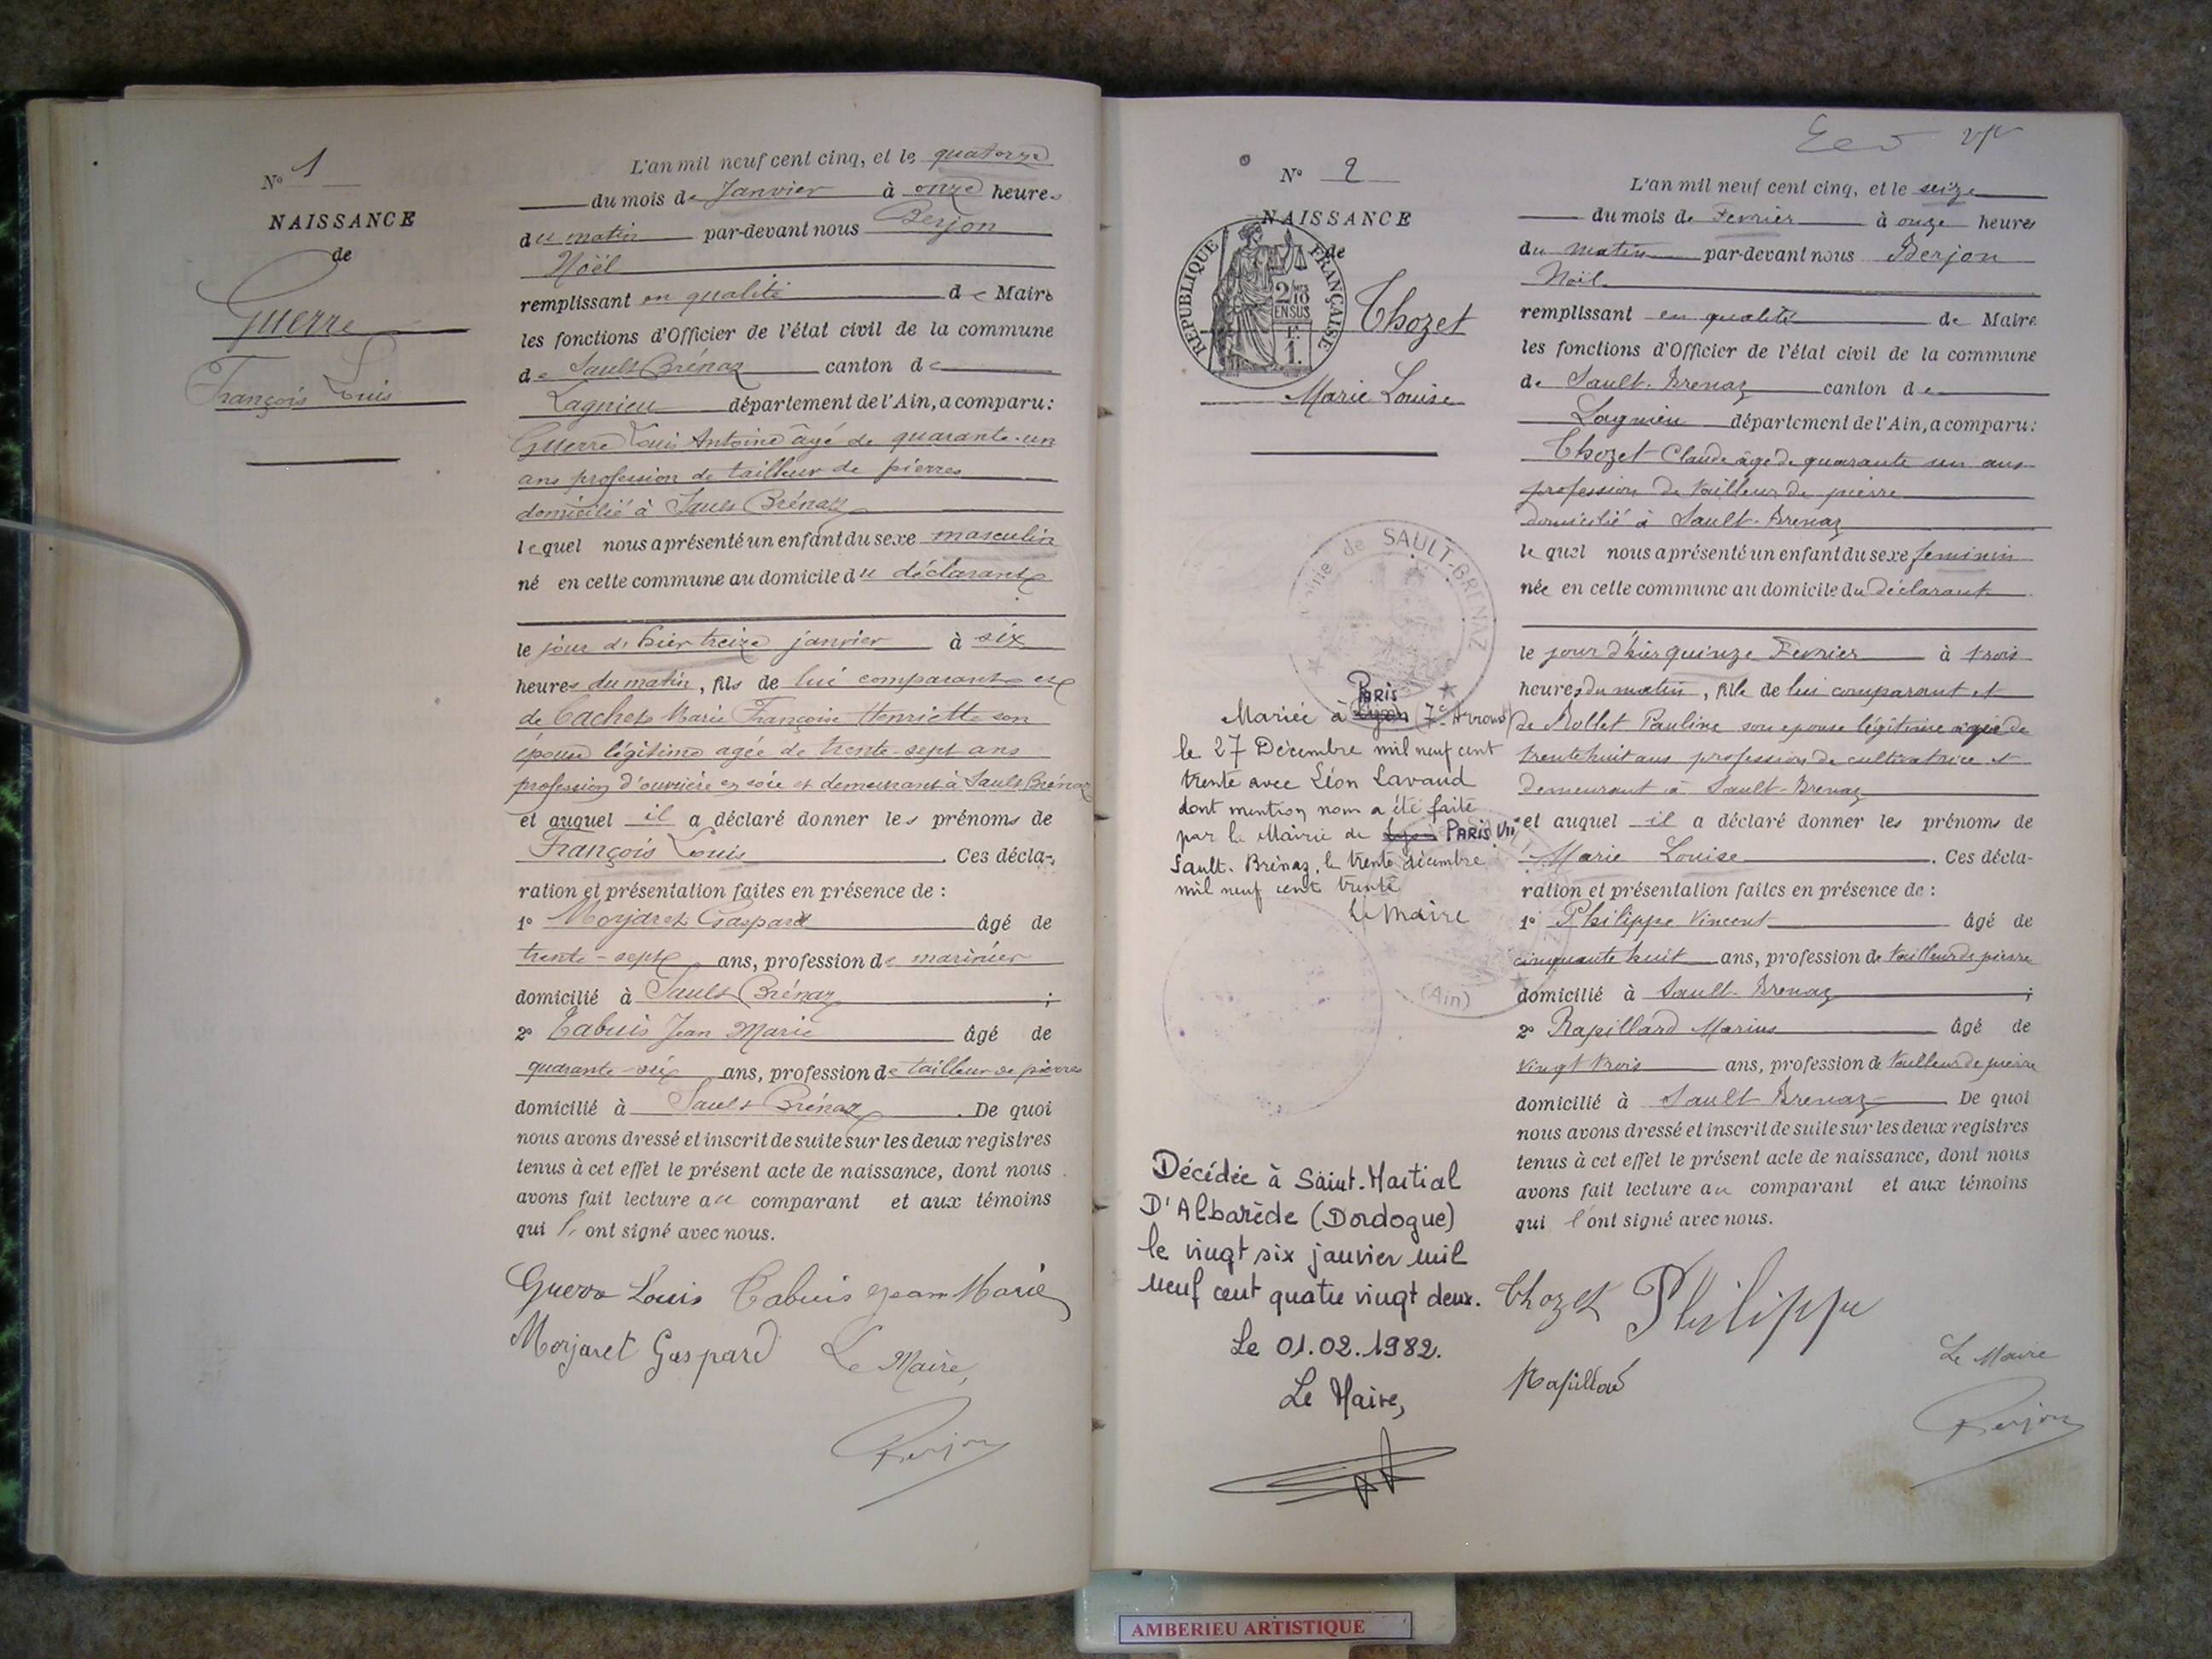 N° 1
NAISSANCE
de
Guerre
François Louis
L'an mil neuf cent cinq, et le quatorze
du mois de Janvier à onze heures
du matin par-devant nous Berjon
Noël
remplissant en qualité de Maire
les fonctions d'Officier de l'état civil de la commune
de Sault Brénaz canton de
Lagnieu département de l'Ain, a comparu:
Guerre Louis Antoine âgé de quarante-un
ans profession de tailleur de pierres
domicilié à Sault Brénaz
lequel nous a présenté un enfant du sexe masculin
né en cette commune au domicile du déclarant
le jour d'hier treize janvier à six
heures du matin, fils de lui comparant et
de Cachet Marie Françoise Henriette son
épouse légitime agée de trente-sept ans
profession d'ouvrière en soie et demeurant à Sault Brénaz
et auquel il a déclaré donner les prénoms de
François Louis . Ces décla-
ration et présentation faites en présence de :
1° Morjaret Gaspard âgé de
trente-sept ans, profession de marinier
domicilié à Sault Brénaz ;
2° Cabuis Jean Marie âgé de
quarante-six ans, profession de tailleur de pierres
domicilié à Sault Brénaz . De quoi
nous avons dressé et inscrit de suite sur les deux registres
tenus à cet effet le présent acte de naissance, dont nous
avons fait lecture au comparant et aux témoins
qui l'ont signé avec nous.
Guerre Louis Cabuis Jean Marie
Morjaret Gaspard Le Maire,
Berjon
N° 2
NAISSANCE
de
RÉPUBLIQUE FRANÇAISE
2/10
EN SUS
1.
Thozet
Marie Louise
Mairie de SAULT-BRENAZ
(Ain)
Paris
Mariée à Lyon (7e Arrond)
le 27 Décembre mil neuf cent
trente avec Léon Lavaud
dont mention nous a été faite
par la Mairie de Lyon PARIS VII
Sault-Brénaz, le trente décembre
mil neuf cent trente
Le Maire
Décédée à Saint-Martial
D'Albarède (Dordogne)
le vingt six janvier mil
neuf cent quatre vingt deux.
Le 01.02.1982.
Le Maire,
L'an mil neuf cent cinq, et le seize
du mois de Fevrier à onze heures
du matin par-devant nous Berjon
Noël
remplissant en qualité de Maire
les fonctions d'Officier de l'état civil de la commune
de Sault-Brenaz canton de
Lagnieu département de l'Ain, a comparu:
Thozet Claude âgé de quarante un ans
profession de tailleur de pierre
domicilié à Sault-Brenaz
lequel nous a présenté un enfant du sexe feminin
née en cette commune au domicile du déclarant
le jour d'hier quinze Fevrier à trois
heures du matin, fille de lui comparant et
de Mollet Pauline son epouse légitime agée de
trente huit ans profession de cultivatrice et
demeurant à Sault-Brenaz
et auquel il a déclaré donner les prénoms de
Marie Louise . Ces décla-
ration et présentation faites en présence de :
1° Philippe Vincent âgé de
cinquante huit ans, profession de tailleur de pierre
domicilié à Sault-Brenaz ;
2° Rapillard Marius âgé de
vingt trois ans, profession de tailleur de pierre
domicilié à Sault Brenaz De quoi
nous avons dressé et inscrit de suite sur les deux registres
tenus à cet effet le présent acte de naissance, dont nous
avons fait lecture au comparant et aux témoins
qui l'ont signé avec nous.
Thozet Philippe
Le Maire
Rapillard
Berjon
AMBERIEU ARTISTIQUE